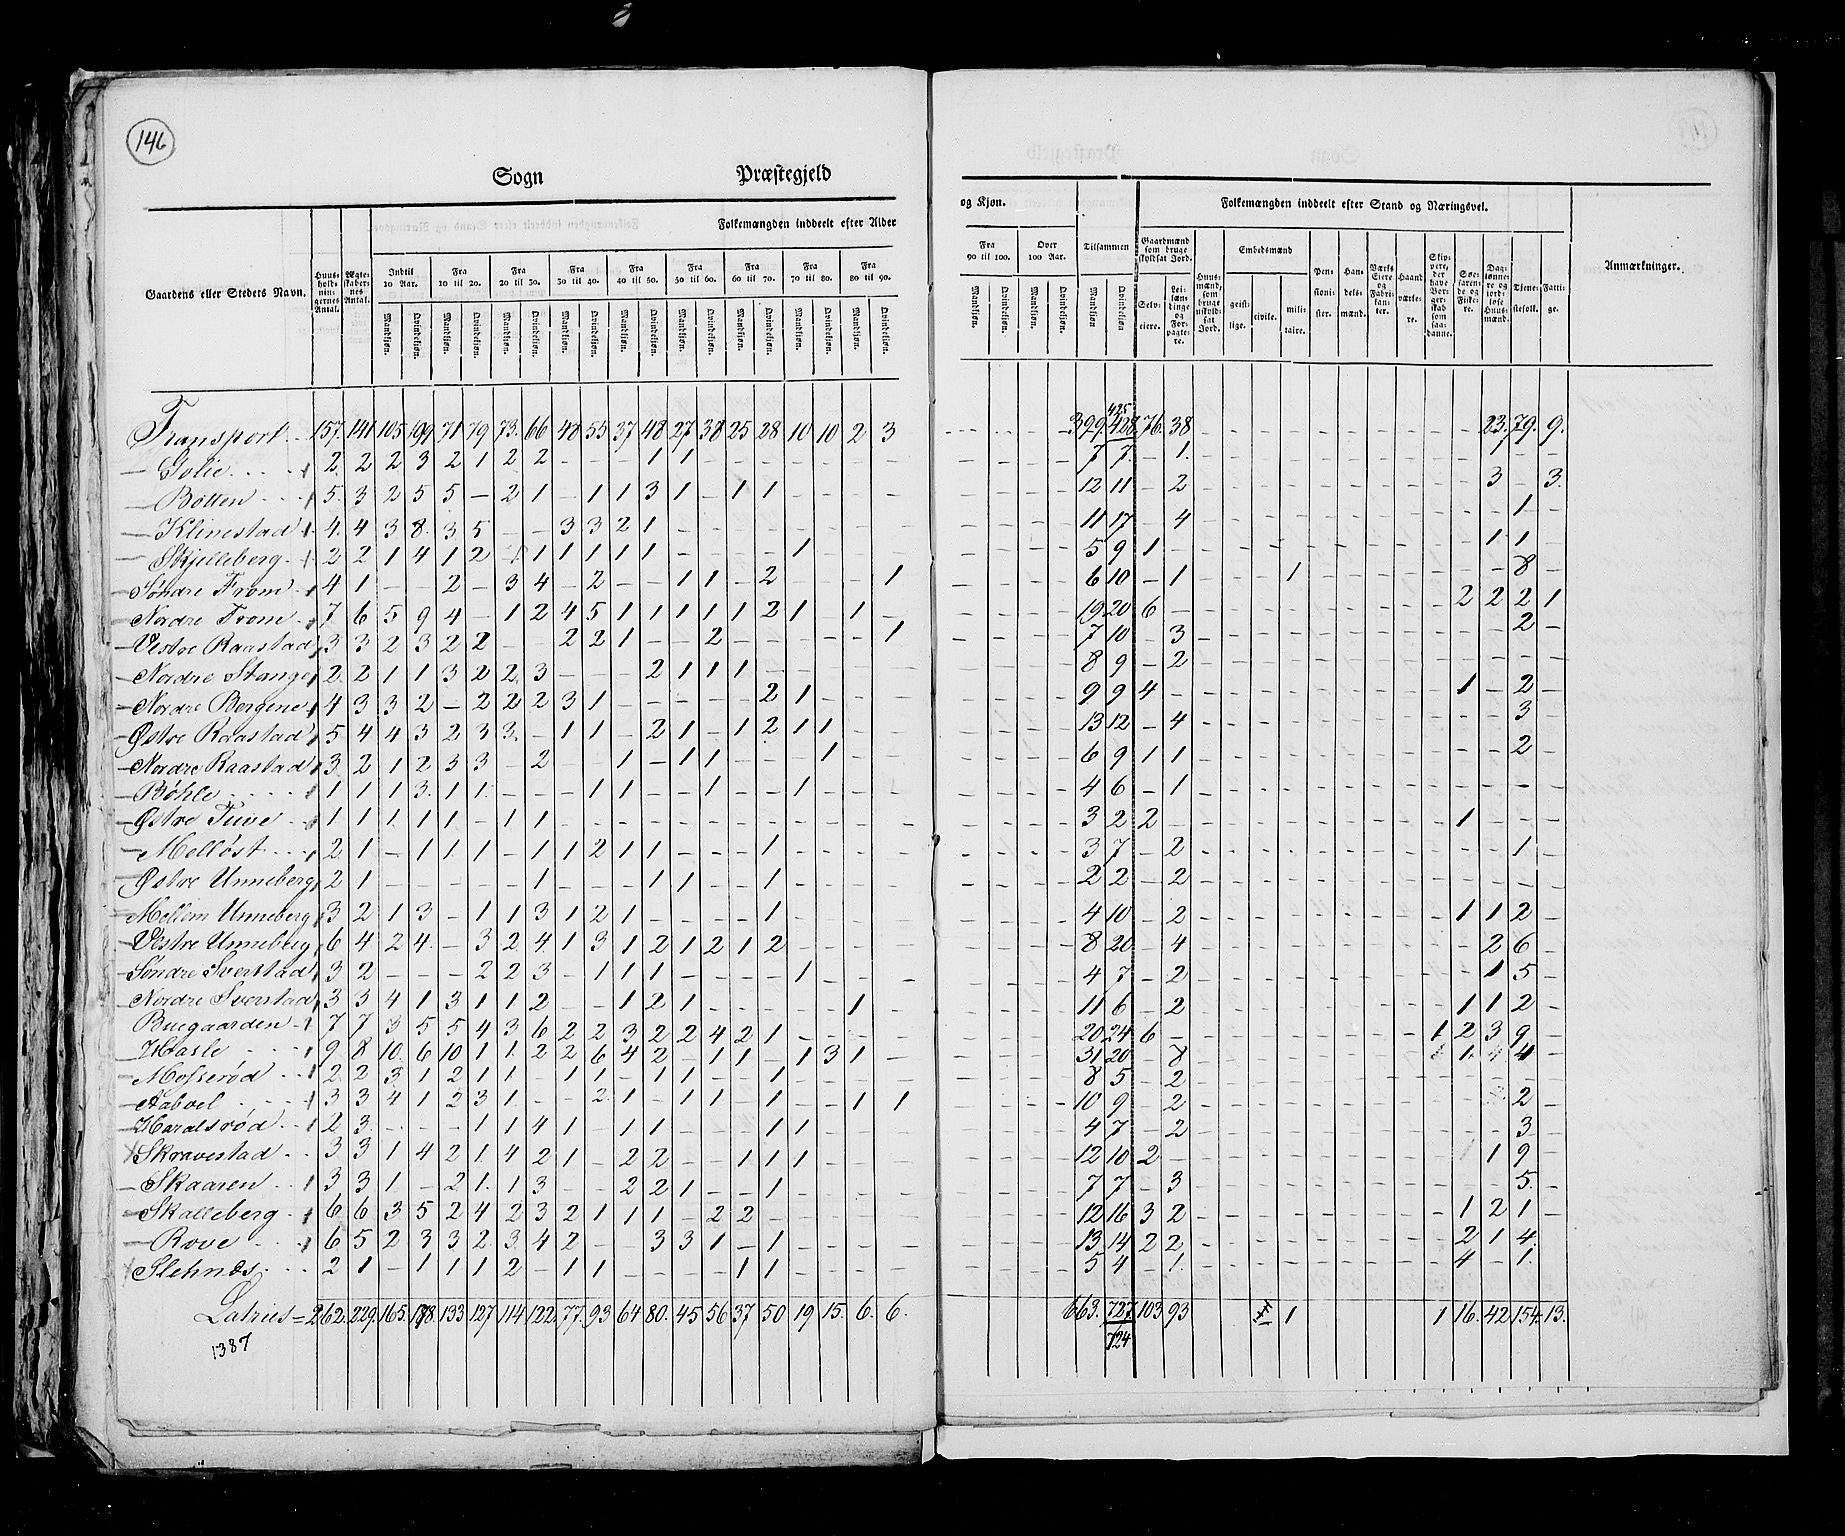 146
Sogn Præstegjeld
og Kjøn. Folkemængden inddeelt efter Stand og Næringsvei.
Folkemængden inddeelt efter Alder
Gaardens eller Stedets Navn. Huusholdningernes Antal. Ægteskabernes Antal. Indtil 10 Aar. Fra 10 til 20. Fra 20 til 30. Fra 30 til 40. Fra 40 til 50. Fra 50 til 60. Fra 60 til 70. Fra 70 til 80. Fra 80 til 90. Fra 90 til 100. Over 100 Aar. Tilsammen Gaardmænd som bruge skyldsat Jord. Huusmænd, som bruge uskyldsat Jord. Embedsmænd Pensionister. Handelsmænd. Værks Eiere og Fabrikanter. Haandværkere. Skippere, der have Borgerskab som saadanne. Søefarende og Fiskere. Daglønnere og jordløse Huusmænd. Tjenestefolk. Fattige. Anmærkninger.
Mandkjøn. Qvindekjøn. Selveiere. Leilændinge og Forpagtere. geistlige. civile. militaire.
Transport 157. 141 105. 199 71 79 73. 66 48 55 37 48 27 38 25 28 10 10 2 3 329. 428. 425 76. 38 23. 79. 9.
Solie 2 2 2 3 2 1 2 2 - - - 1 1 7 7. - 1. 1 - -
Bötten 5. 3 2 5 5 - 2 1 - 1 1 3 1 - 1 1 - - - - 12 11 - 2 3 - 3.
Klinestad 4. 4 3 8. 3 5 - - 3 3 2 1 - - - - - - - - 11 17 - 4 - 1 -
Skjelleberg 2 2 1 4 1 2 - 1 1 1 1 1 - - - - 1 - - - 5 9 1 - 1 1 -
Søndre From 4 1 - - 2 - 3 4 - 2 - - 1 1 - 2 - - - 1 6 10 - 1 1 - - 8 -
Nordre From 7 6 5 9 4 - 1 2 4 5 1 1 1 1 1 2 1 - 1 - 19 20 6 - 2 2 2 1
Vestre Raastad 3 3 2 3 2 2 - - 2 2 1 - - 2 - - - - - 1 7 10 - 3 - - 2 -
Nordre Stange 2 2 1 1 3 2 2 3 - - - 2 1 1 1 - - - - - 8 9 - 2 - - - -
Nordre Bergene 4 3 3 2 - 2 2 2 3 1 - - - - - 2 1 - - - 9 9 4 - 1 - 2 -
Østre Raastad 5 4 4 3 2 3 3. - 1 1 - 2 1 - 1 2 1 1 - - 13 12 - 4 - - 3 -
Nordre Raastad 3 2 1 2 3 3 - 2 - - 1 - 1 1 - - - 1 - - 6 9 1 1 - - 2 -
Böhle 1 1 1 3. 1 1. - - - 1 1 - - 1 - - 1 - - - 4 6 - 1 - - - -
Østre Tuve 1 1 1 1 1 - 1 1 - - - - - - - - - - - - 3 2 2 - 1 - - -
Melløst 2 1 - 1 1 1 - 1 1 2 1 1 - - - 1 - - - - 3 7 - 2 - - 1 -
Østre Unneberg 2 1 - - - - - 1 - - - 1 1 - - 1 - - - - 2 2 - 2 - - - -
Mellem Unneberg 3 2 1 3 - 1 1 3 1 2 1 - - - - 1 - - - - 4 10 - 2 1 1 2 -
Vestre Unneberg 6 4 2 4. - 3 2 4 1 3 1 2 1 2 1 2 - - - - 8 20 - 4 - 2 6 -
Søndre Sverstad 3 2 - - - 2 2 3 - 1 1 1 - - - - 1 - - - 4 7 - 2 - 1 5 -
Nordre Sverstad 3 3 4 1 3 1 1 2 - - 1 2 1 - - - - - 1 - 11 6 - 2 1 1 2 -
Buegaarden 7 7 3 5 5 4 3 6 2 2 3 2 2 4 2 1 - - - - 20 24 6 - 1 2 3 9 -
Hasle 9 8 10. 6 10 1 1. 2 2 6 4 2 - 1 1 - 1 3 1 - 31 20 - 8 1 4 4 -
Mosserød 2 2 3 1 2 1 1 - 1 1 - 1 1 - - 1 - - - - 8 5 - 2 - - - -
Aabvel 3 3 4 1 2 3 1 - - 2 1 - 1 1 - 1 - - 1 1 10 9 - 2 - 2 -
Haralsrød 2 3 - - - 1 1 4 1 - 1 1 - - - 1 1 - - - 4 7 - 2 - - 3 -
Skravestad 3 3 1 4 2 1 4 2 1 - 2 2 - - 1 1 1 - - - 12 10 2 - 1 9 -
Skaaren 3 3 1 - 2 1. 1 3 - - 2 2 1 - - 1 - - - - 7 7 - 3 - - 5. -
Skalleberg 6 6 3 5 2 4 2 3 2 1 1 1 - 2 2 - - - - - 12 16 3 2 1 2 1 -
Rove 6 5 2 3 3 2 3 4 2 - - 3 3 1 - 1 - - - - 13 14 2 2 2 1 4. -
Slehnæs 2 1 - 1 1 1 2 - 1 1 - - - - 1 1 - - - - 5 4 - 1. 4 - 1. -
Latries = 262. 229. 165. 178. 133 127 114 122 77. 93 64 80. 45 56 37 50 19 15. 6. 6. 663. 727. 103 93 1 1 16. 42 154. 13.
724
1387